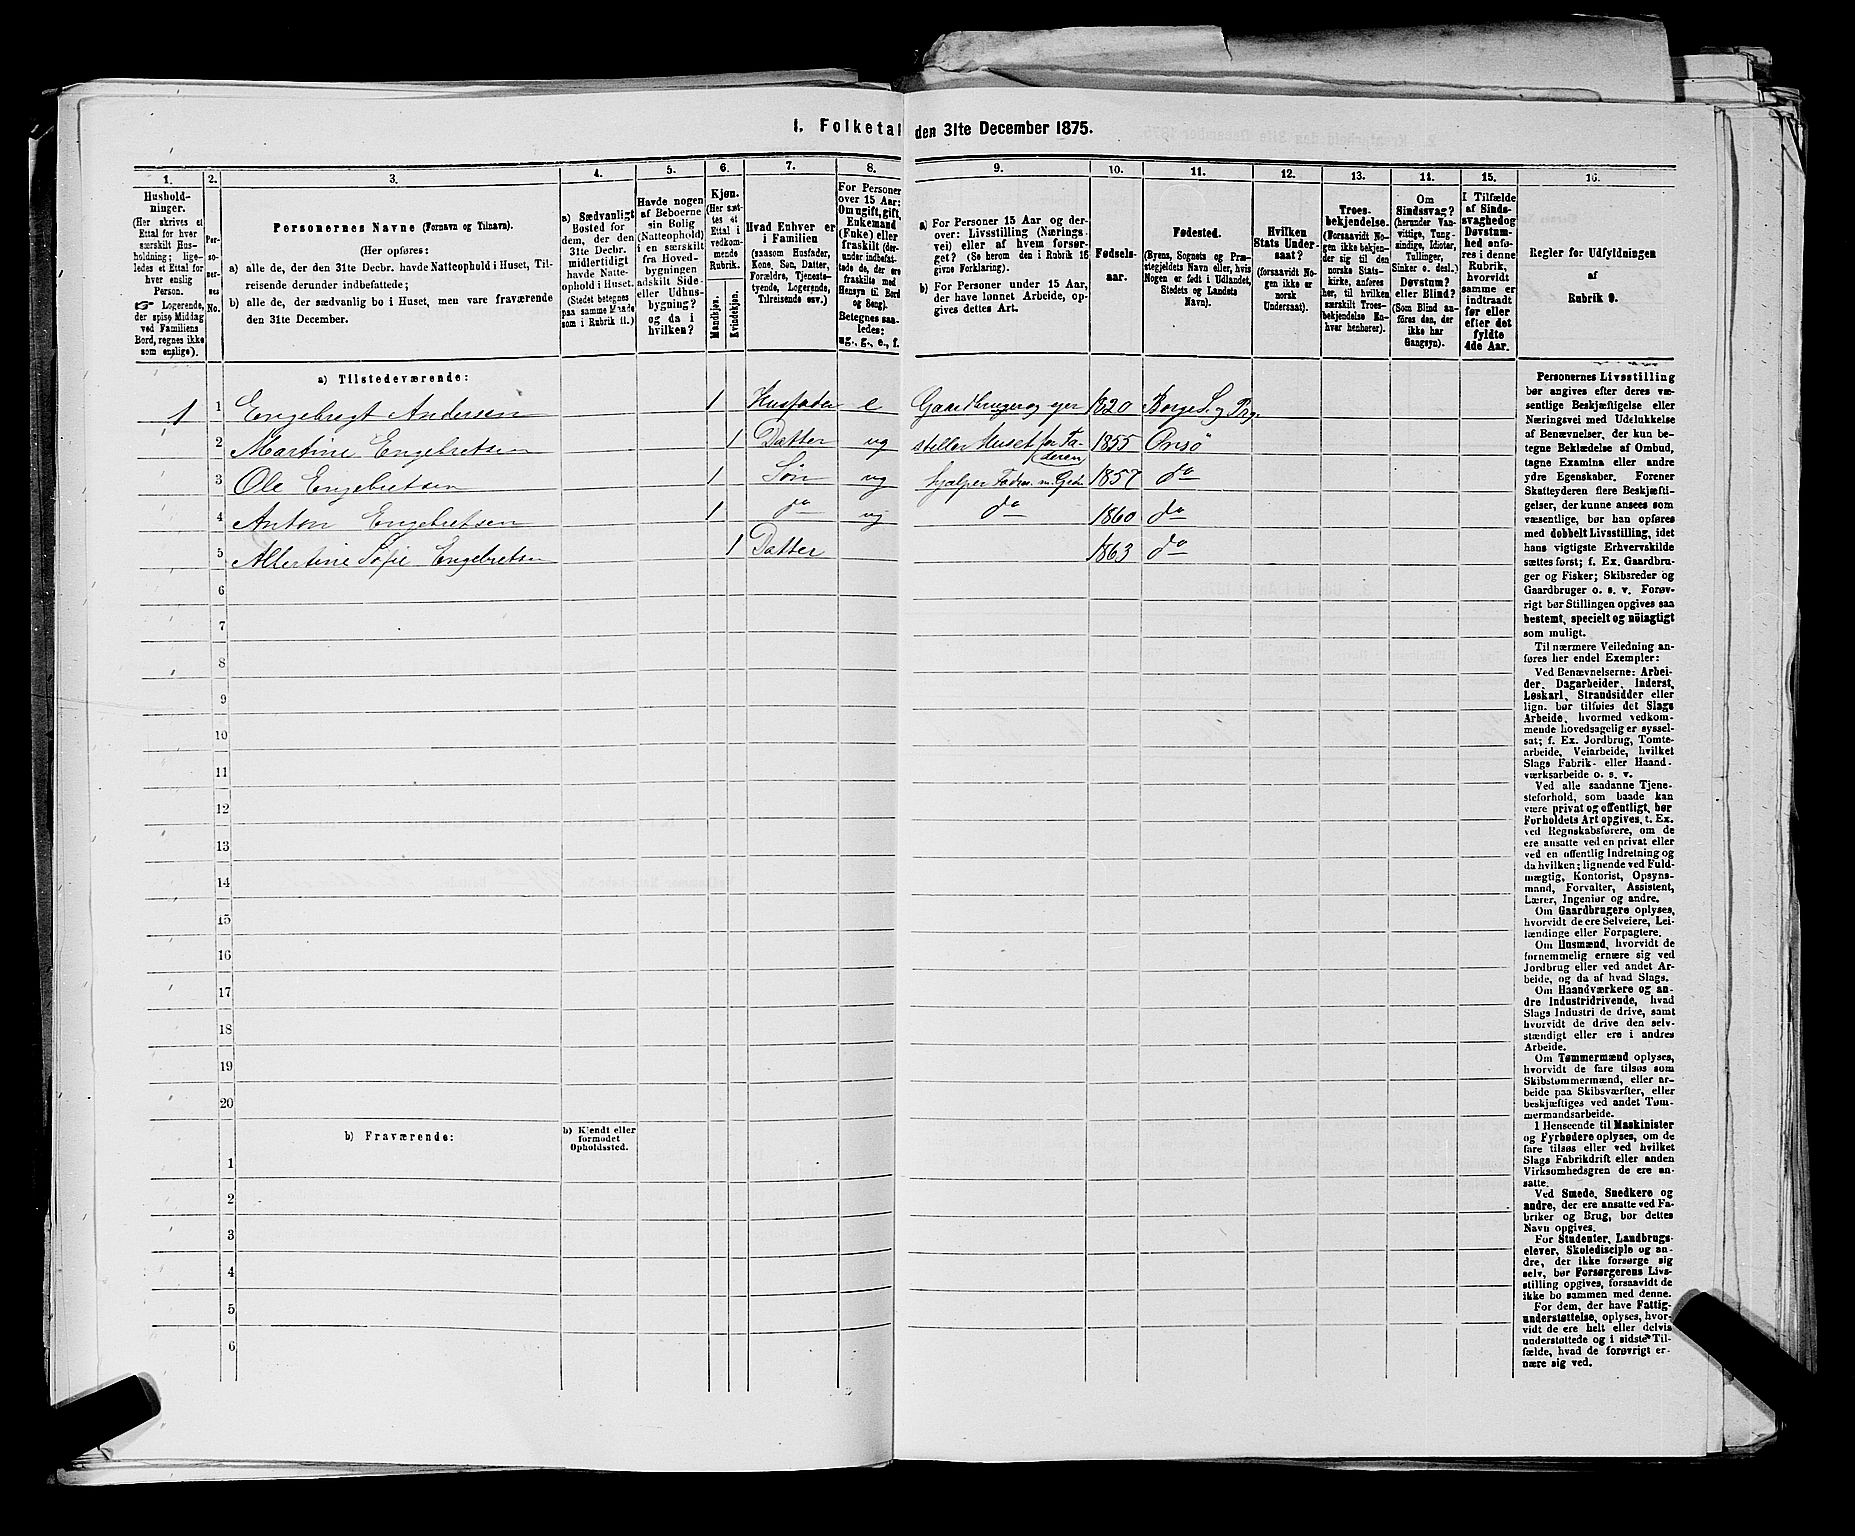 1. Folketal den 31te December 1875.
1. 2. 3. 4. 5. 6. 7. 8. 9. 10. 11. 12. 13. 14. 15. 16.
Hushold-
ninger.
(Her skrives et
Ettal for hver
særskilt Hus-
holdning; lige-
ledes et Ettal for
hver enslig
Person.
☞ Logerende,
der spise Middag
ved Familiens
Bord, regnes ikke
som enslige).
Per-
so-
ner-
nes
No.
Personernes Navne (Fornavn og Tilnavn).
(Her opføres:
a) alle de, der den 31te Decbr. havde Natteophold i Huset, Til-
reisende derunder indbefattede;
b) alle de, der sædvanlig bo i Huset, men vare fraværende
den 31te December.
a) Sædvanligt
Bosted for
dem, der den
31te Decbr.
midlertidigt
havde Natte-
ophold i Huset.
(Stedet betegnes
paa samme Maade
som i Rubrik 11.)
Havde nogen
af Beboerne
sin Bolig
(Natteophold)
i en særskilt
fra Hoved-
bygningen
adskilt Side-
eller Udhus-
bygning?
og da i
hvilken?
Kjøn.
(Her sæt-
tes et
Ettal i
vedkom-
mende
Rubrik.
Mandkjøn.
Kvindekjøn.
Hvad Enhver er
i Familien
(saasom Husfader,
Kone, Søn, Datter,
Forældre, Tjeneste-
tyende, Logerende,
Tilreisende osv.)
For Personer
over 15 Aar:
Om ugift, gift,
Enkemand
(Enke) eller
fraskilt (der-
under indbefat-
tede de, der ere
fraskilte med
Hensyn til Bord
og Seng).
Betegnes saa-
ledes:
ug., g., e., f.
a) For Personer 15 Aar og der-
over: Livsstilling (Nærings-
vei) eller af hvem forsør-
get? (Se herom den i Rubrik 16
givne Forklaring).
b) For Personer under 15 Aar,
der have lønnet Arbeide, op-
gives dettes Art.
Fødsels-
aar.
Fødested.
(Byens, Sognets og Præ-
stegjeldets Navn eller, hvis
Nogen er født i Udlandet,
Stedets og Landets
Navn).
Hvilken
Stats Under-
saat?
(forsaavidt No-
gen ikke er
norsk
Undersaat).
Troes-
bekjendelse.
(Forsaavidt No-
gen ikke bekjen-
der sig til den
norske Stats-
kirke, anføres
her, til hvilken
særskilt Troes-
bekjendelse En-
hver henhører).
Om
Sindssvag?
(herunder Van-
vittige, Tung-
sindige, Idioter,
Tullinger,
Sinker o. desl.)
Døvstum?
eller Blind?
(Som Blind an-
føres den, der
ikke har
Gangsyn).
I Tilfælde
af Sinds-
svaghed og
Døvstum-
hed anfø-
res i denne
Rubrik,
hvorvidt
samme er
indtraadt
før eller
efter det
fyldte
4de Aar.
Regler for Udfyldningen
af
Rubrik 9.
a) Tilstedeværende:
1 1 Engebregt Andersen 1 Husfader e Gaardbruger og ejer 1820 Borge S. og Prg.
2 Martine Engebretsen 1 Datter ug steller Huset for Fa-
deren 1855 Onsö
3 Ole Engebretsen 1 Søn ug hjælper Faderen m. Grdr. 1857 do
4 Anton Engebretsen 1 do ug do 1860 do
5 Albertine Sofie Engebretsen 1 Datter 1863 do
6
7
8
9
10
11
12
13
14
15
16
17
18
19
20
b) Fraværende:
b) Kjendt eller
formodet
Opholdssted.
1
2
3
4
5
6
Personernes Livsstilling
bør angives efter deres væ-
sentlige Beskjæftigelse eller
Næringsvei med Udelukkelse
af Benævnelser, der kun be-
tegne Beklædelse af Ombud,
tagne Examina eller andre
ydre Egenskaber. Forener
Skatteyderen flere Beskjæfti-
gelser, der kunne ansees som
væsentlige, bør han opføres
med dobbelt Livsstilling, idet
hans vigtigste Erhvervskilde
sættes først; f. Ex. Gaardbru-
ger og Fisker; Skibsreder og
Gaardbruger o. s. v. Forøv-
rigt bør Stillingen opgives saa
bestemt, specielt og nöiagtigt
som muligt.
Til nærmere Veiledning an-
føres her endel Exempler:
Ved Benævnelserne: Arbei-
der, Dagarbeider, Inderst,
Løskarl, Strandsidder eller
lign. bør tilføies det Slags
Arbeide, hvormed vedkom-
mende hovedsagelig er syssel-
sat; f. Ex. Jordbrug, Tomte-
arbeide, Veiarbeide, hvilket
Slags Fabrik- eller Haand-
værksarbeide o. s. v.
Ved alle saadanne Tjene-
steforhold, som baade kan
være privat og offentligt, bør
Forholdets Art opgives, t. Ex.
ved Regnskabsførere, om de
ere ansatte ved en privat eller
ved en offentlig Indretning og
da hvilken; lignende ved Fuld-
mægtig, Kontorist, Opsyns-
mand, Forvalter, Assistent,
Lærer, Ingeniør og andre.
Om Gaardbrugere oplyses,
hvorvidt de ere Selveiere, Lei-
lændinge eller Forpagtere.
Om Husmænd, hvorvidt de
fornemmelig ernære sig ved
Jordbrug eller ved andet Ar-
beide, og da af hvad Slags.
Om Haandværkere og an-
dre Industridrivende, hvad
Slags Industri de drive, samt
hvorvidt de drive den selv-
stændigt eller ere i andres
Arbeide.
Om Tømmermænd oplyses,
hvorvidt de fare tilsøs som
Skibstømmermænd, eller ar-
beide paa Skibsværfter, eller
beskjæftiges ved andet Tøm-
mermandsarbeide.
I Henseende til Maskinister
og Fyrbødere oplyses, om de
fare tilsøs eller ved hvilket
Slags Fabrikdrift eller anden
Virksomhedsgren de ere an-
satte.
Ved Smede, Snedkere og
andre, der ere ansatte ved Fa-
briker og Brug, bør dettes
Navn opgives.
For Studenter, Landbrugs-
elever, Skoledisciple og an-
dre, der ikke forsørge sig
selv, bør Forsørgerens Livs-
stilling opgives, forsaavidt de
ikke bo sammen med denne.
For dem, der have Fattig-
understøttelse, oplyses, hvor-
vidt de ere helt eller delvis
understøttede og i sidste Til-
fælde, hvad de forøvrigt er-
nære sig ved.